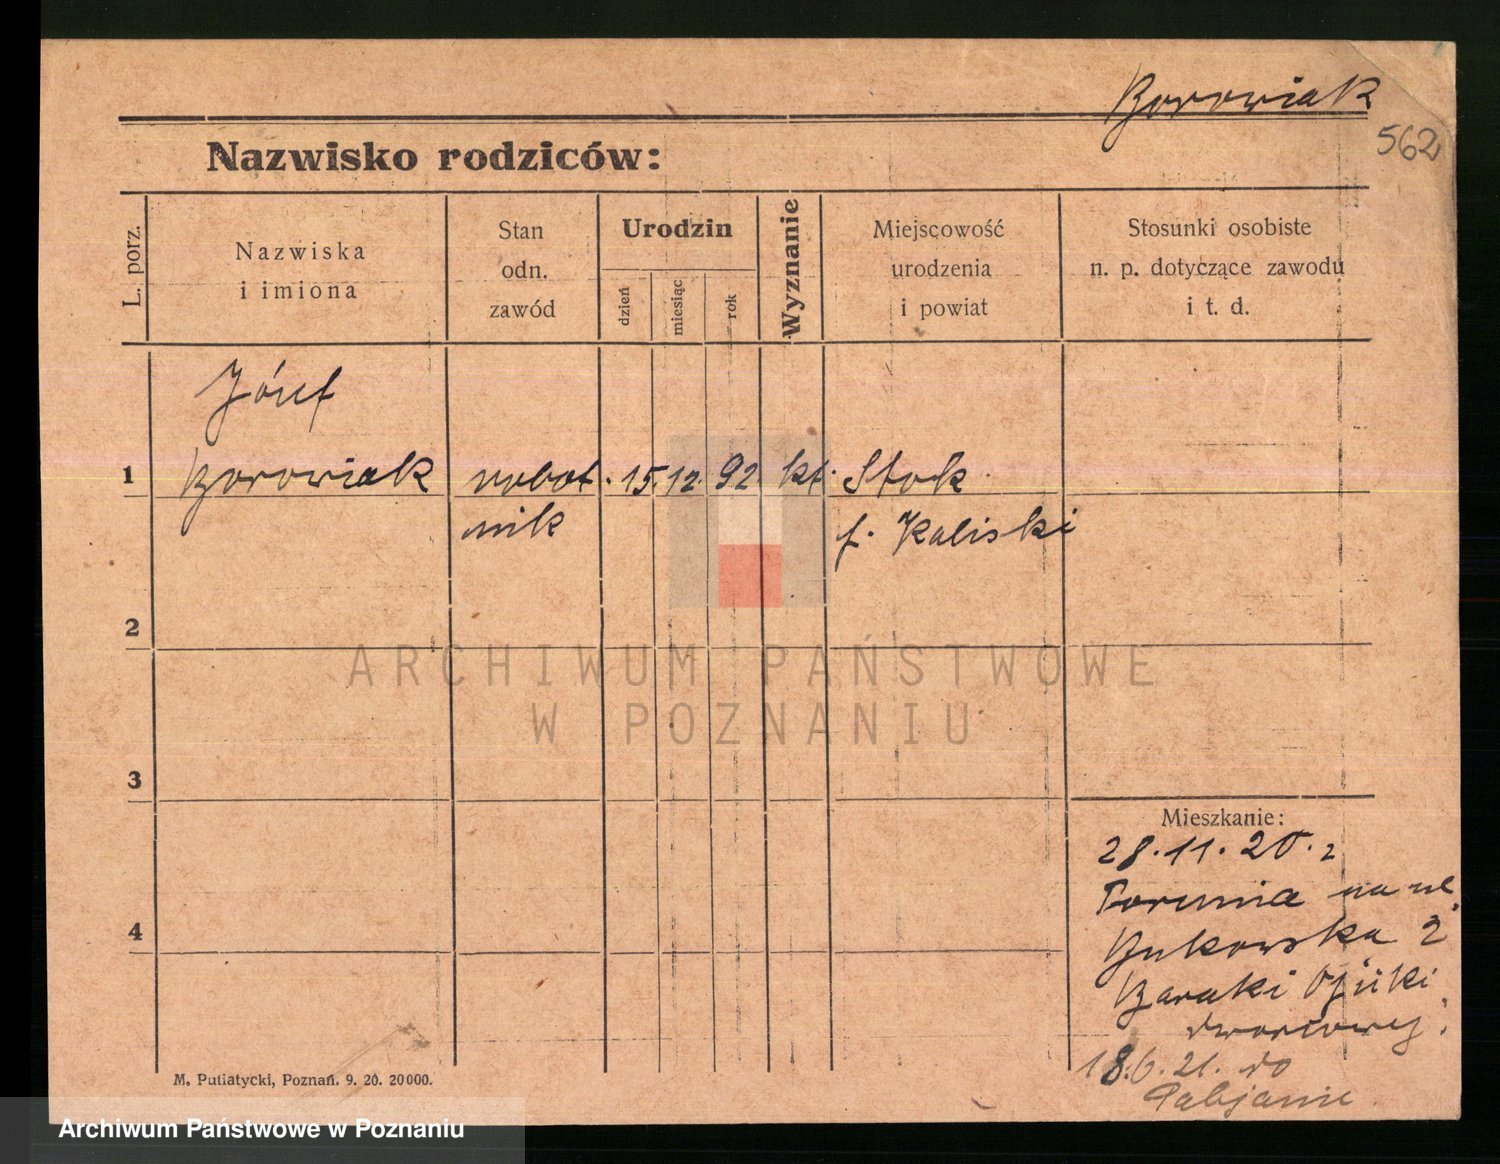 Borowiak
562
Nazwisko rodziców:
L. porz.
Nazwiska
i imiona
Stan
odn.
zawód
Urodzin
dzień
miesiąc
rok
Wyznanie
Miejscowość
urodzenia
i powiat
Stosunki osobiste
n. p. dotyczące zawodu
i t. d.
Józef
1 Borowiak robot. 15. 12. 92 kt. Stok
nik p. Kaliski
2
ARCHIWUM PAŃSTWOWE
W POZNANIU
3
Mieszkanie:
28.11.20. z
Torunia na ul.
4
Bukowska 2
Baraki Opieki
dworcowej.
18.6.21. do
Pabjanic
M. Putiatycki, Poznań. 9. 20. 20000.
Archiwum Państwowe w Poznaniu